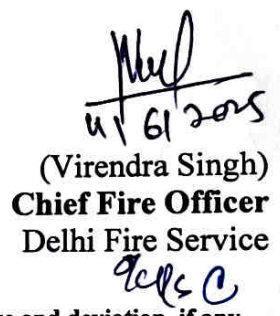 6/2025
(Virendra Singh)
Chief Fire Officer
Delhi Fire Service
and deviation, if any